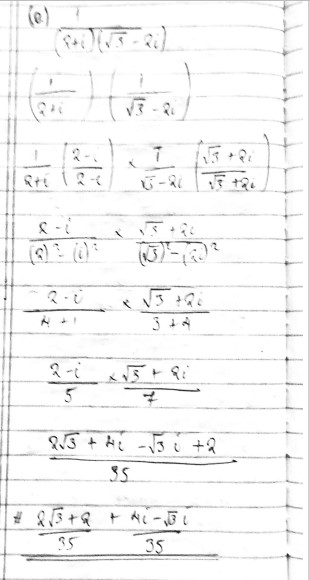 (e) 1 / (2+i)(√3 - 2i)
(1 / 2+i) (1 / √3 - 2i)
1 / 2+i (2-i / 2-i) × 1 / √3 - 2i (√3 + 2i / √3 + 2i)
2-i / (2)² - (i)² × √3 + 2i / (√3)² - (2i)²
2-i / 4+1 × √3 + 2i / 3+4
2-i / 5 × √3 + 2i / 7
2√3 + 4i - √3 i + 2 / 35
# 2√3 + 2 / 35 + 4i - √3 i / 35